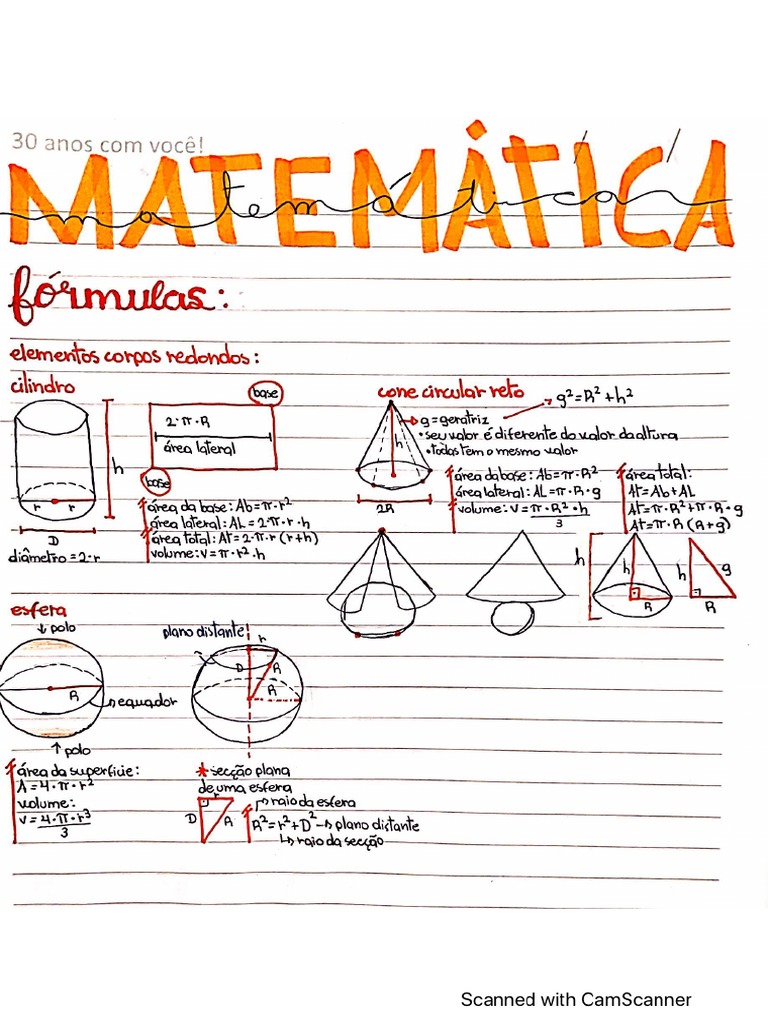 30 anos com você!
MATEMÁTICA
matemática
fórmulas:
elementos corpos redondos:
cilindro
h
r r
D
diâmetro = 2·r
base
2·π·R
área lateral
base
área da base: Ab=π·r²
área lateral: AL=2·π·r·h
área total: At=2·π·r(r+h)
volume: v=π·r²·h
cone circular reto
g²=R²+h²
g=geratriz
•seu valor é diferente do valor da altura
•todas tem o mesmo valor
h
2R
área da base: Ab=π·R²
área lateral: AL=π·R·g
volume: V=π·R²·h
3
área total:
At=Ab+AL
At=π·R²+π·R·g
At=π·R(R+g)
h
h
R
h
g
R
esfera
polo
R
equador
polo
área da superfície:
A=4·π·r²
volume:
v=4·π·r³
3
plano distante
r
D
R
R
secção plana
de uma esfera
r
D
R
raio da esfera
R²=r²+D²→plano distante
raio da secção
Scanned with CamScanner